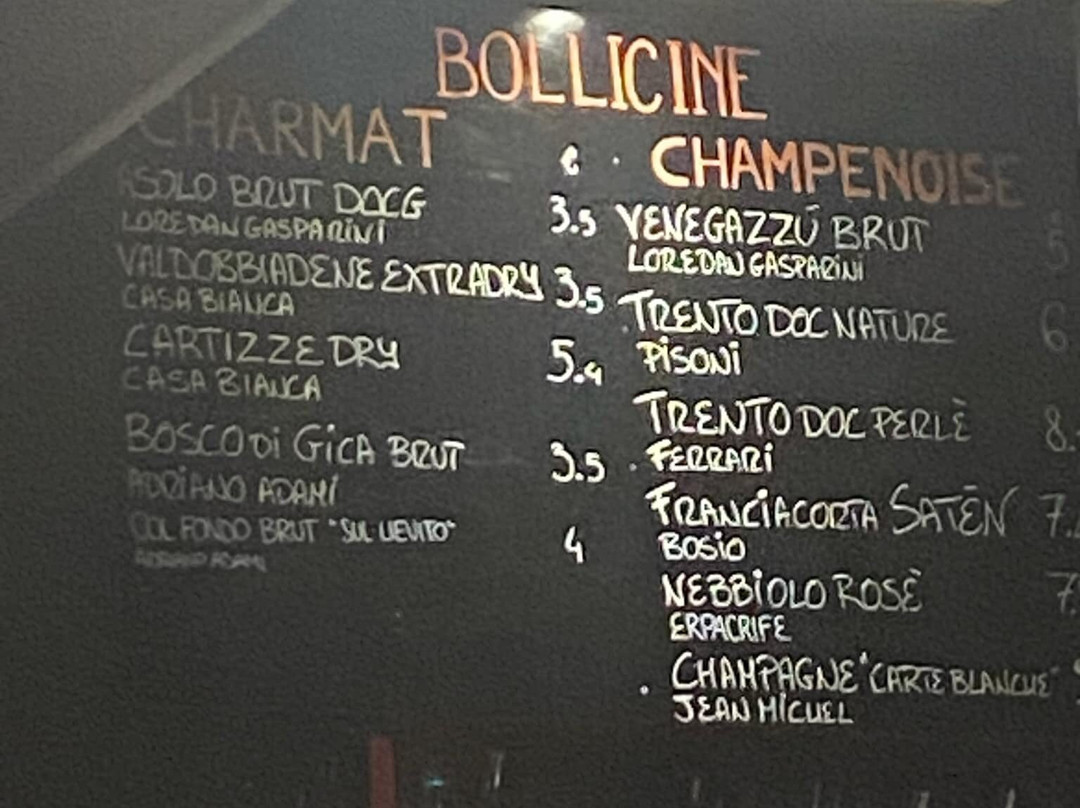 BOLLICINE
CHARMAT €
ASOLO BRUT DOCG 3.5
LOREDAN GASPARINI
VALDOBBIADENE EXTRADRY 3.5
CASA BIANCA
CARTIZZE DRY
CASA BIANCA
BOSCO Di GiCA BRUT 3.5
ADRIANO ADAMI
COL FONDO BRUT "SUL LIEVITO" 4
ADRIANO ADAMI
CHAMPENOISE
VENEGAZZÙ BRUT 5
LOREDAN GASPARINI
TRENTO DOC NATURE 6
PISONI
TRENTO DOC PERLÈ 8.
FERRARI
FRANCIACORTA SATÈN 7.
BOSIO
NEBBIOLO ROSÈ 7.
ERPACRIFE
CHAMPAGNE "CARTE BLANCHE"
JEAN MICHEL